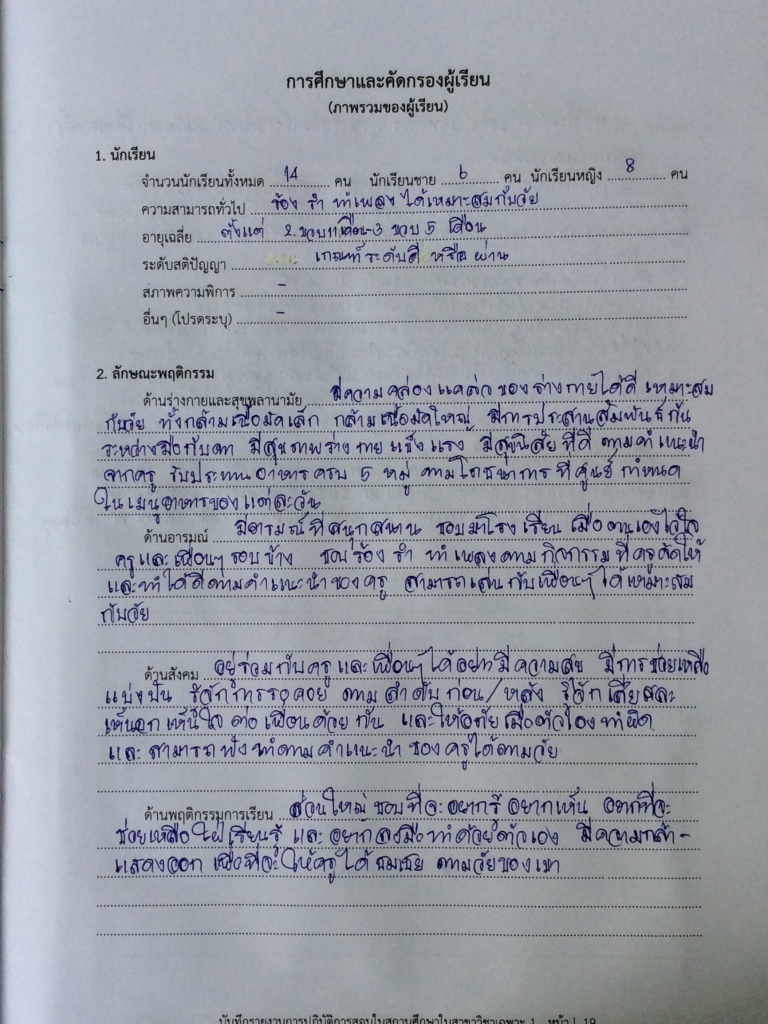 การศึกษาและคัดกรองผู้เรียน
(ภาพรวมของผู้เรียน)
1. นักเรียน
จำนวนนักเรียนทั้งหมด 14 คน นักเรียนชาย 6 คน นักเรียนหญิง 8 คน
ความสามารถทั่วไป ร้อง รำ ทำเพลง ได้เหมาะสมกับวัย
อายุเฉลี่ย ตั้งแต่ 2 ขวบ 11 เดือน-3 ขวบ 5 เดือน
ระดับสติปัญญา เกณฑ์ระดับดี หรือ ผ่าน
สภาพความพิการ -
อื่นๆ (โปรดระบุ) -
2. ลักษณะพฤติกรรม
ด้านร่างกายและสุขพลานามัย มีความคล่องแคล่วของร่างกายได้ดี เหมาะสม
กับวัย ทั้งกล้ามเนื้อมัดเล็ก กล้ามเนื้อมัดใหญ่ มีการประสานสัมพันธ์กัน
ระหว่างมือกับตา มีสุขภาพร่างกายแข็งแรง มีสุขนิสัยที่ดี ตามคำแนะนำ
จากครู รับประทานอาหารครบ 5 หมู่ ตามโภชนาการที่ศูนย์กำหนด
ในเมนูอาหารของแต่ละวัน
ด้านอารมณ์ มีอารมณ์ที่สนุกสนาน ชอบมาโรงเรียน เมื่อตนเองไว้ใจ
ครูและเพื่อนๆ รอบข้าง ชอบร้อง รำ ทำเพลงตามกิจกรรมที่ครูจัดให้
และทำได้ดีตามคำแนะนำของครู สามารถเล่นกับเพื่อนๆ ได้เหมาะสม
กับวัย
ด้านสังคม อยู่ร่วมกับครูและเพื่อนๆ ได้อย่างมีความสุข มีการช่วยเหลือ
แบ่งปัน รู้จักการรอคอย ตามลำดับก่อน/หลัง รู้จักเสียสละ
เห็นอกเห็นใจ ต่อเพื่อนด้วยกัน และให้อภัยเมื่อตัวเองทำผิด
และสามารถฟังทำตามคำแนะนำของครูได้ตามวัย
ด้านพฤติกรรมการเรียน ส่วนใหญ่ชอบที่จะอยากรู้ อยากเห็น อยากที่จะ
ช่วยเหลือ ใฝ่เรียนรู้ และอยากลงมือทำด้วยตัวเอง มีความกล้า-
แสดงออก เพื่อที่จะให้ครูได้ชมเชย ตามวัยของเขา
บันทึกรายงานการปฏิบัติการสอนในสถานศึกษาในสาขาวิชาเฉพาะ 1 หน้า | 19